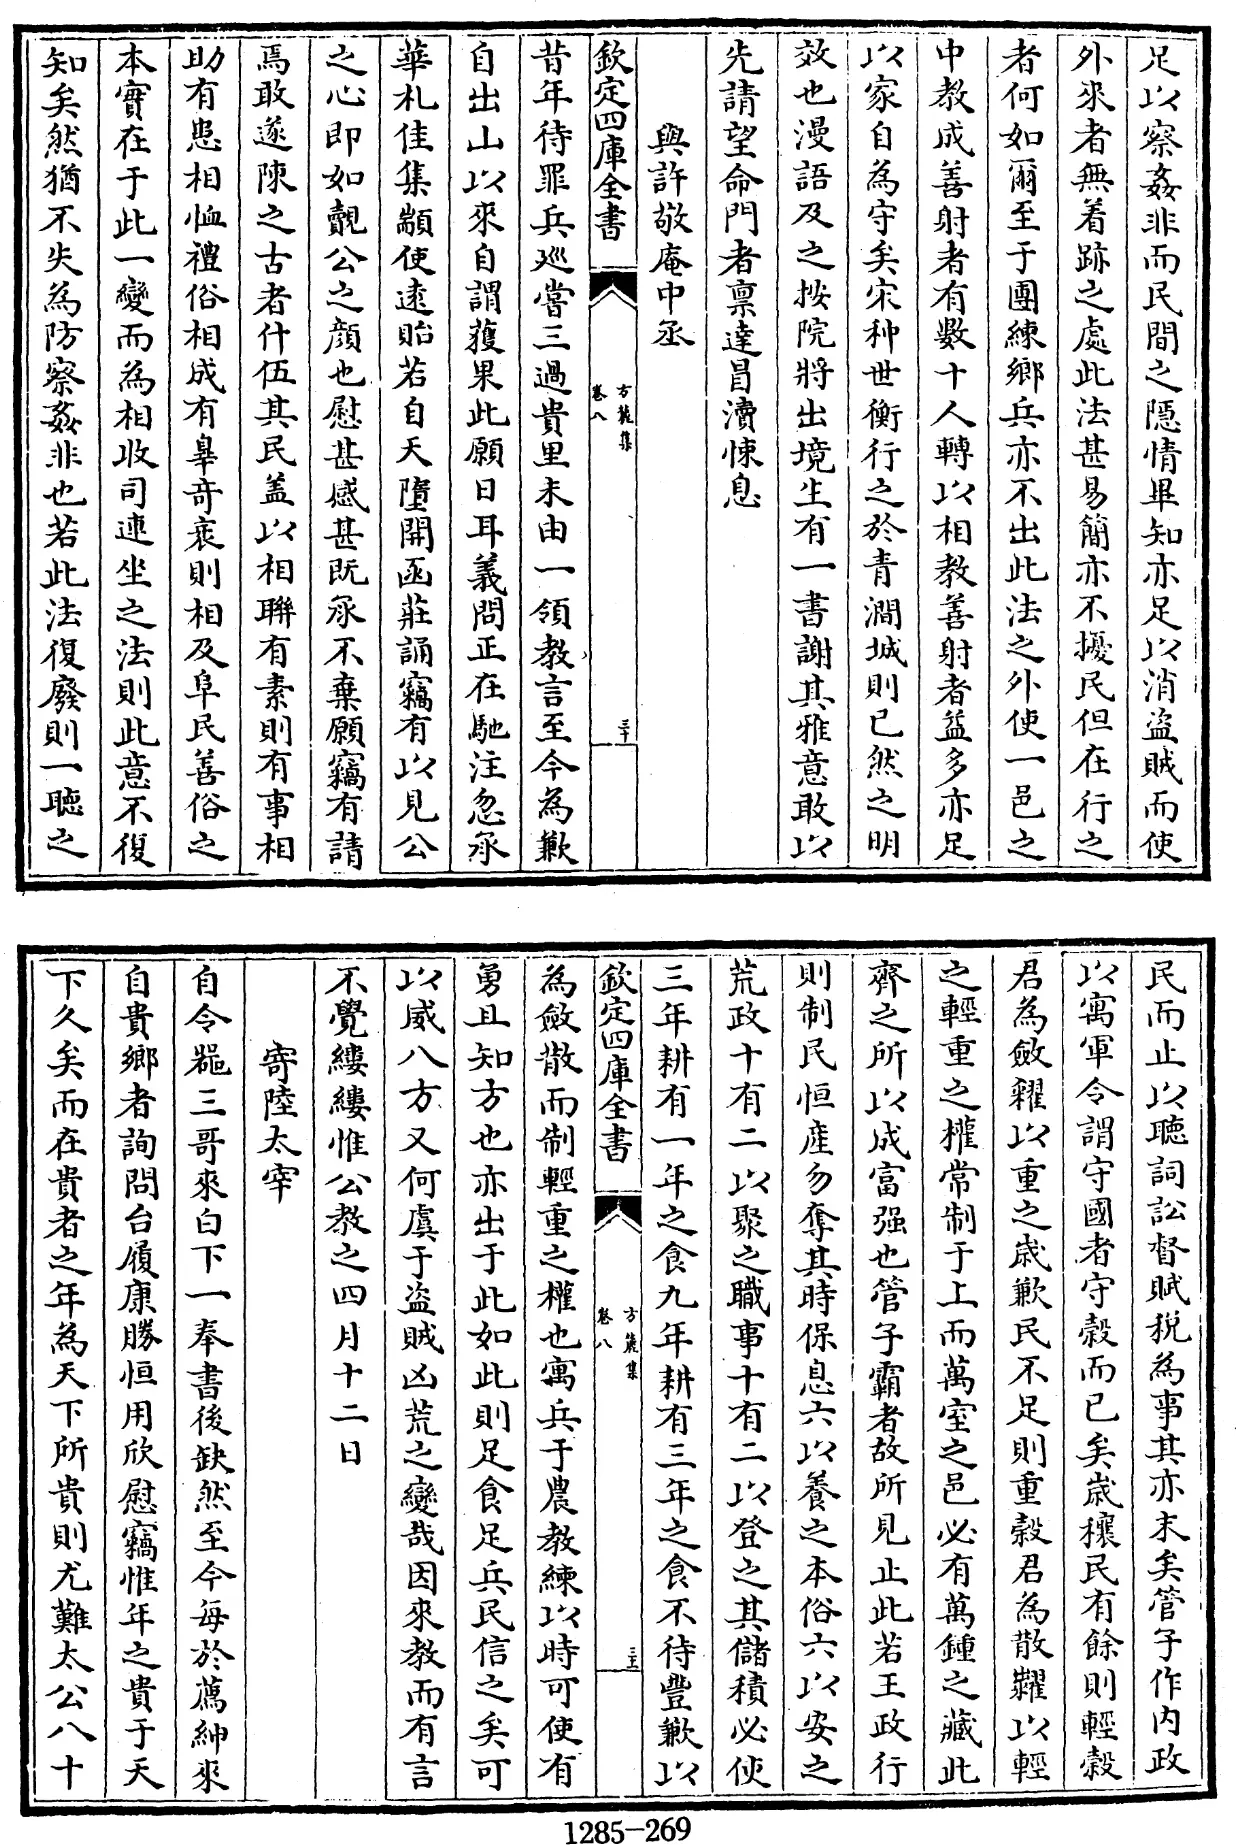 足以察姦非而民間之隱情畢知亦足以消盜賊而使
外來者無着跡之處此法甚易簡亦不擾民但在行之
者何如爾至于團練鄉兵亦不出此法之外使一邑之
中教成善射者有數十人轉以相教善射者益多亦足
以家自為守矣宋种世衡行之於青澗城則已然之明
效也漫語及之按院將出境生有一書謝其雅意敢以
先請望命門者禀達冒瀆悚息
與許敬庵中丞
欽定四庫全書
方麓集
卷八
三十
昔年待罪兵廵嘗三過貴里未由一領教言至今為歉
自出山以來自謂獲果此願日耳義問正在馳注忽承
華札佳集顓使遠貽若自天墮開函莊誦竊有以見公
之心即如覿公之顔也慰甚感甚既承不棄願竊有請
焉敢遂陳之古者什伍其民盖以相聯有素則有事相
助有患相恤禮俗相成有辠竒衺則相及阜民善俗之
本實在于此一變而為相收司連坐之法則此意不復
知矣然猶不失為防察姦非也若此法復廢則一聽之
民而止以聽詞訟督賦税為事其亦末矣管子作内政
以寓軍令謂守國者守穀而已矣歳穰民有餘則輕穀
君為斂糴以重之歳歉民不足則重穀君為散糶以輕
之輕重之權常制于上而萬室之邑必有萬鍾之藏此
齊之所以成富强也管子霸者故所見止此若王政行
則制民恒產勿奪其時保息六以養之本俗六以安之
荒政十有二以聚之職事十有二以登之其儲積必使
三年耕有一年之食九年耕有三年之食不待豐歉以
欽定四庫全書
方麓集
卷八
三十一
為斂散而制輕重之權也寓兵于農教練以時可使有
勇且知方也亦出于此如此則足食足兵民信之矣可
以威八方又何虞于盜賊凶荒之變哉因來教而有言
不覺縷縷惟公教之四月十二日
寄陸太宰
自令㼐三哥來白下一奉書後缺然至今每於薦紳來
自貴鄉者詢問台履康勝恒用欣慰竊惟年之貴于天
下久矣而在貴者之年為天下所貴則尤難太公八十
1285-269